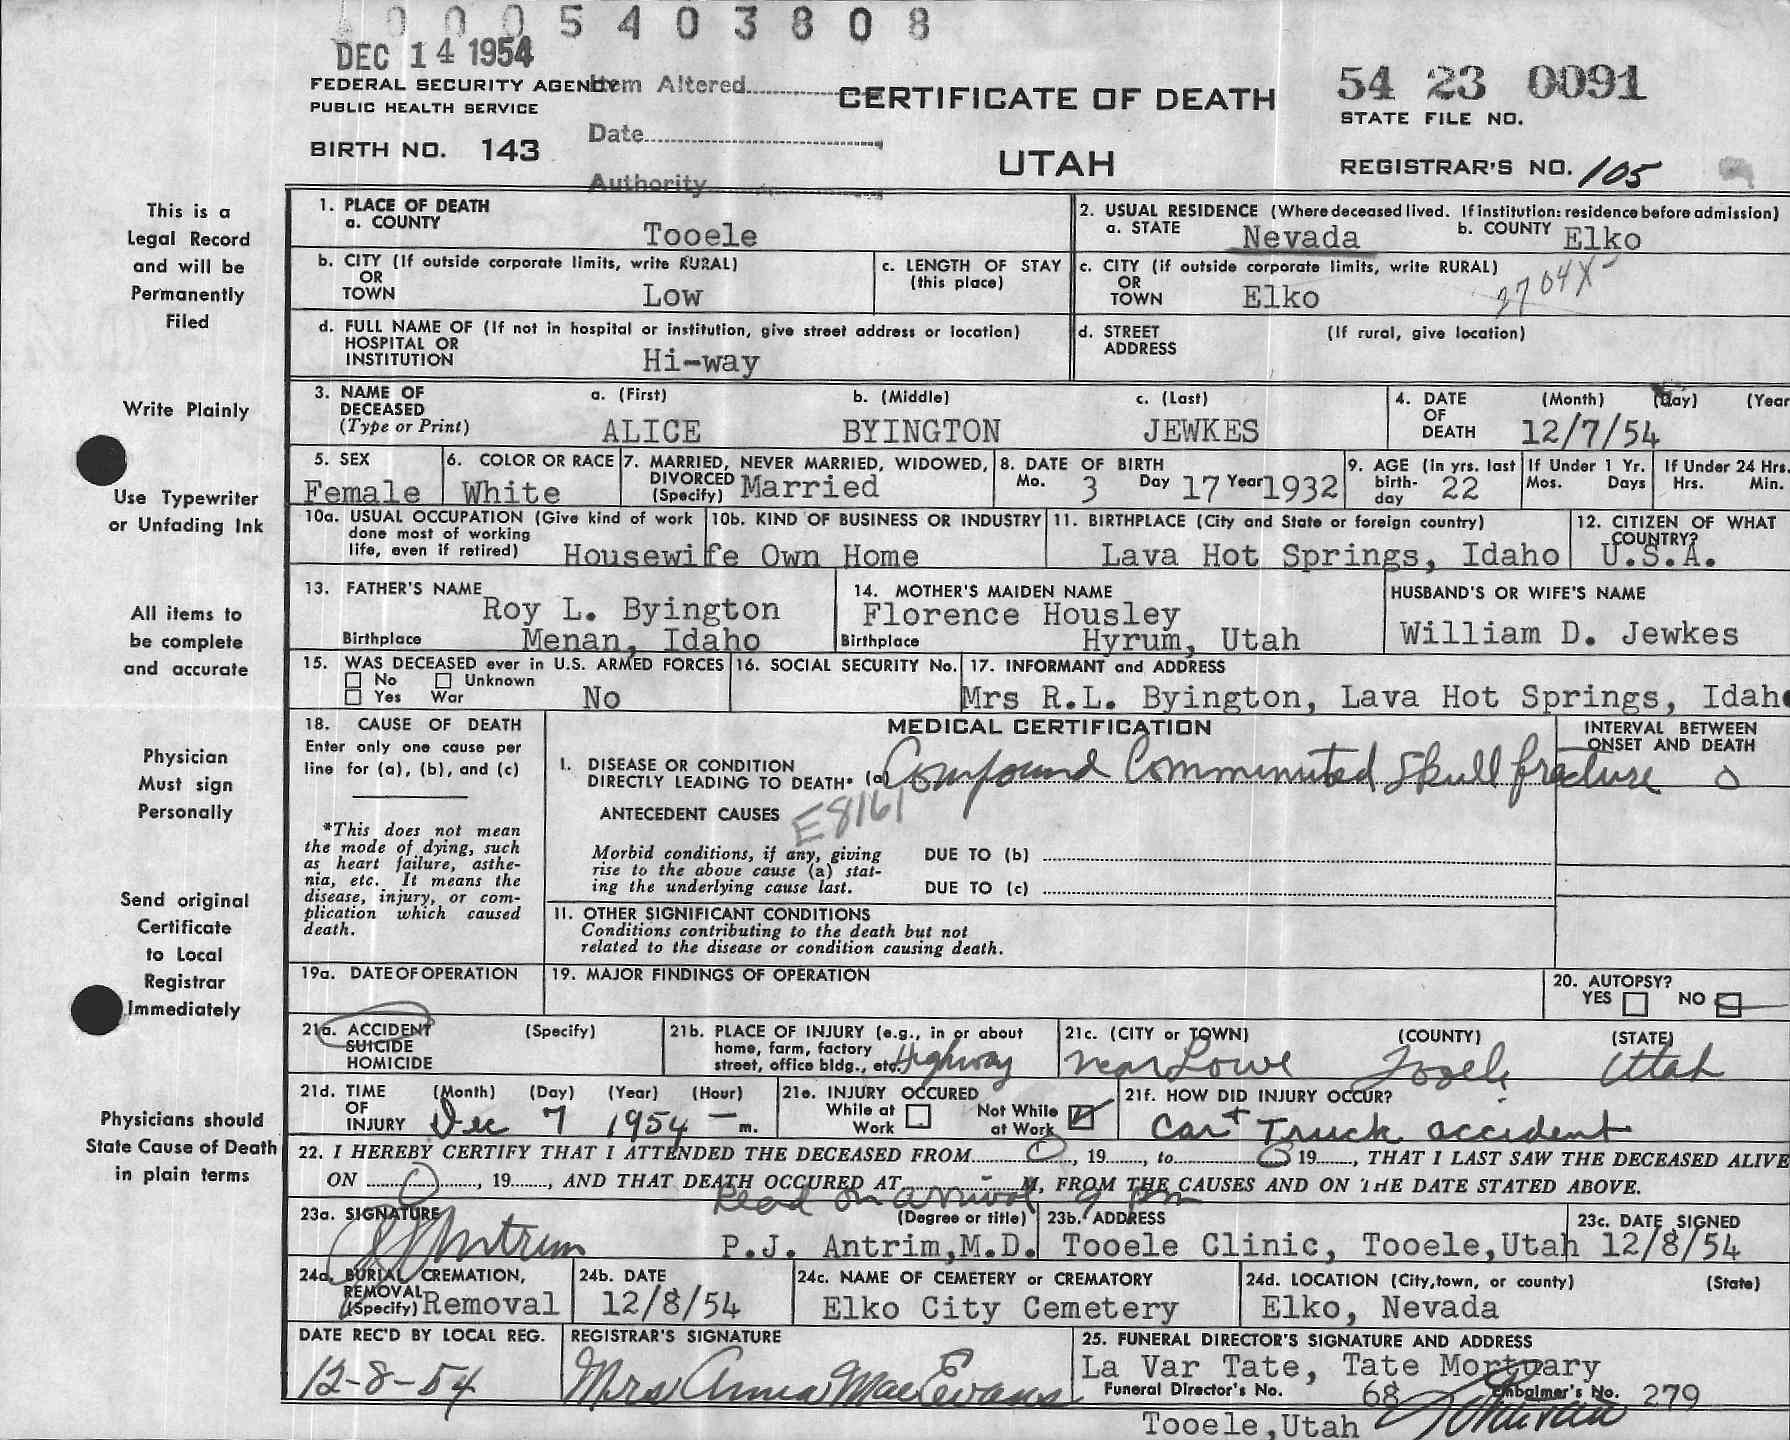 0005403808
DEC 14 1954
FEDERAL SECURITY AGENCY
PUBLIC HEALTH SERVICE
BIRTH NO. 143
Item Altered
Date
Authority
CERTIFICATE OF DEATH
UTAH
54 23 0091
STATE FILE NO.
REGISTRAR'S NO. 105
This is a
Legal Record
and will be
Permanently
Filed
Write Plainly
Use Typewriter
or Unfading Ink
All items to
be complete
and accurate
Physician
Must sign
Personally
Send original
Certificate
to Local
Registrar
Immediately
Physicians should
State Cause of Death
in plain terms
1. PLACE OF DEATH
a. COUNTY Tooele
2. USUAL RESIDENCE (Where deceased lived. If institution: residence before admission)
a. STATE Nevada b. COUNTY Elko
b. CITY (If outside corporate limits, write RURAL)
OR
TOWN Low
c. LENGTH OF STAY
(this place)
c. CITY (if outside corporate limits, write RURAL)
OR
TOWN Elko
2704X-
d. FULL NAME OF (If not in hospital or institution, give street address or location)
HOSPITAL OR
INSTITUTION Hi-way
d. STREET (If rural, give location)
ADDRESS
3. NAME OF DECEASED (Type or Print)
a. (First) b. (Middle) c. (Last)
ALICE BYINGTON JEWKES
4. DATE OF DEATH (Month) (Day) (Year
12/7/54
5. SEX
Female
6. COLOR OR RACE
White
7. MARRIED, NEVER MARRIED, WIDOWED,
DIVORCED
(Specify) Married
8. DATE OF BIRTH
Mo. 3 Day 17 Year 1932
9. AGE (In yrs. last
birth-
day 22
If Under 1 Yr.
Mos. Days
If Under 24 Hrs.
Hrs. Min.
10a. USUAL OCCUPATION (Give kind of work
done most of working
life, even if retired) Housewife
10b. KIND OF BUSINESS OR INDUSTRY
Own Home
11. BIRTHPLACE (City and State or foreign country)
Lava Hot Springs, Idaho
12. CITIZEN OF WHAT
COUNTRY?
U.S.A.
13. FATHER'S NAME
Roy L. Byington
Birthplace Menan, Idaho
14. MOTHER'S MAIDEN NAME
Florence Housley
Birthplace Hyrum, Utah
HUSBAND'S OR WIFE'S NAME
William D. Jewkes
15. WAS DECEASED ever in U.S. ARMED FORCES
No Unknown
Yes War No
16. SOCIAL SECURITY No.
17. INFORMANT and ADDRESS
Mrs R.L. Byington, Lava Hot Springs, Idaho
18. CAUSE OF DEATH
Enter only one cause per
line for (a), (b), and (c)
*This does not mean
the mode of dying, such
as heart failure, asthe-
nia, etc. It means the
disease, injury, or com-
plication which caused
death.
MEDICAL CERTIFICATION
INTERVAL BETWEEN
ONSET AND DEATH
I. DISEASE OR CONDITION
DIRECTLY LEADING TO DEATH* (a) Compound Comminuted Skull fracture 0
ANTECEDENT CAUSES E8161
Morbid conditions, if any, giving
rise to the above cause (a) stat-
ing the underlying cause last.
DUE TO (b)
DUE TO (c)
II. OTHER SIGNIFICANT CONDITIONS
Conditions contributing to the death but not
related to the disease or condition causing death.
19a. DATE OF OPERATION
19. MAJOR FINDINGS OF OPERATION
20. AUTOPSY?
YES NO
21a. ACCIDENT (Specify)
SUICIDE
HOMICIDE
21b. PLACE OF INJURY (e.g., in or about
home, farm, factory
street, office bldg., etc. Highway
21c. (CITY or TOWN) (COUNTY) (STATE)
near Lowe Tooele Utah
21d. TIME OF INJURY (Month) (Day) (Year) (Hour)
Dec 7 1954 — m.
21e. INJURY OCCURED
While at Work Not While at Work
21f. HOW DID INJURY OCCUR?
Car + Truck accident
22. I HEREBY CERTIFY THAT I ATTENDED THE DECEASED FROM 0, 19, to 0 19, THAT I LAST SAW THE DECEASED ALIVE
ON 0, 19, AND THAT DEATH OCCURED AT M, FROM THE CAUSES AND ON THE DATE STATED ABOVE.
Dead on arrival 9 pm
23a. SIGNATURE (Degree or title)
PJ Antrim P.J. Antrim,M.D.
23b. ADDRESS
Tooele Clinic, Tooele,Utah
23c. DATE SIGNED
12/8/54
24a. BURIAL, CREMATION,
REMOVAL
(Specify) Removal
24b. DATE
12/8/54
24c. NAME OF CEMETERY or CREMATORY
Elko City Cemetery
24d. LOCATION (City,town, or county) (State)
Elko, Nevada
DATE REC'D BY LOCAL REG.
12-8-54
REGISTRAR'S SIGNATURE
Mrs Anna Mae Evans
25. FUNERAL DIRECTOR'S SIGNATURE AND ADDRESS
La Var Tate, Tate Mortuary
Funeral Director's No. 68 Embalmer's No. 279
Tooele,Utah